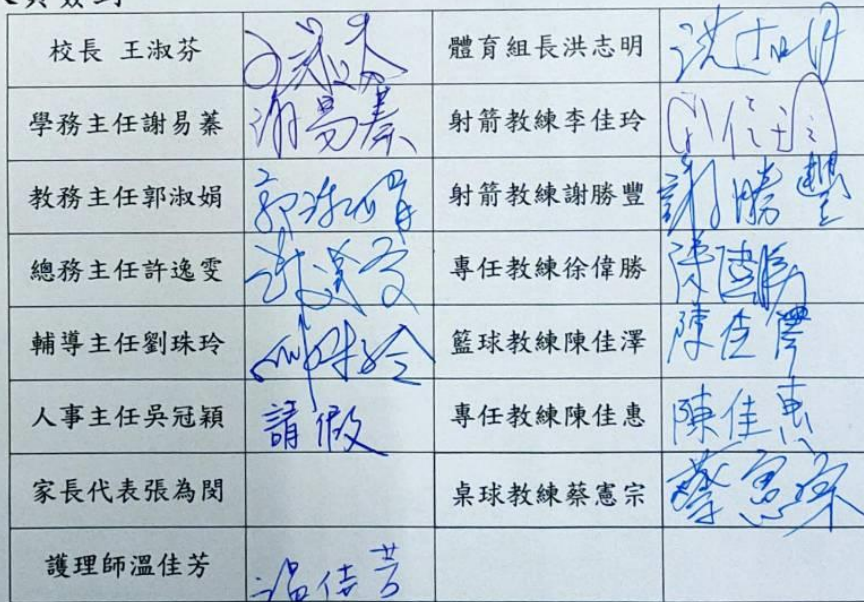 校長 王淑芬
體育組長洪志明
學務主任謝易蓁 謝易蓁
射箭教練李佳玲
教務主任郭淑娟 郭淑娟
射箭教練謝勝豐 謝勝豐
總務主任許逸雯
專任教練徐偉勝
輔導主任劉珠玲
籃球教練陳佳澤 陳佳澤
人事主任吳冠穎 請假
專任教練陳佳惠 陳佳惠
家長代表張為閔
桌球教練蔡憲宗 蔡憲宗
護理師溫佳芳 溫佳芳